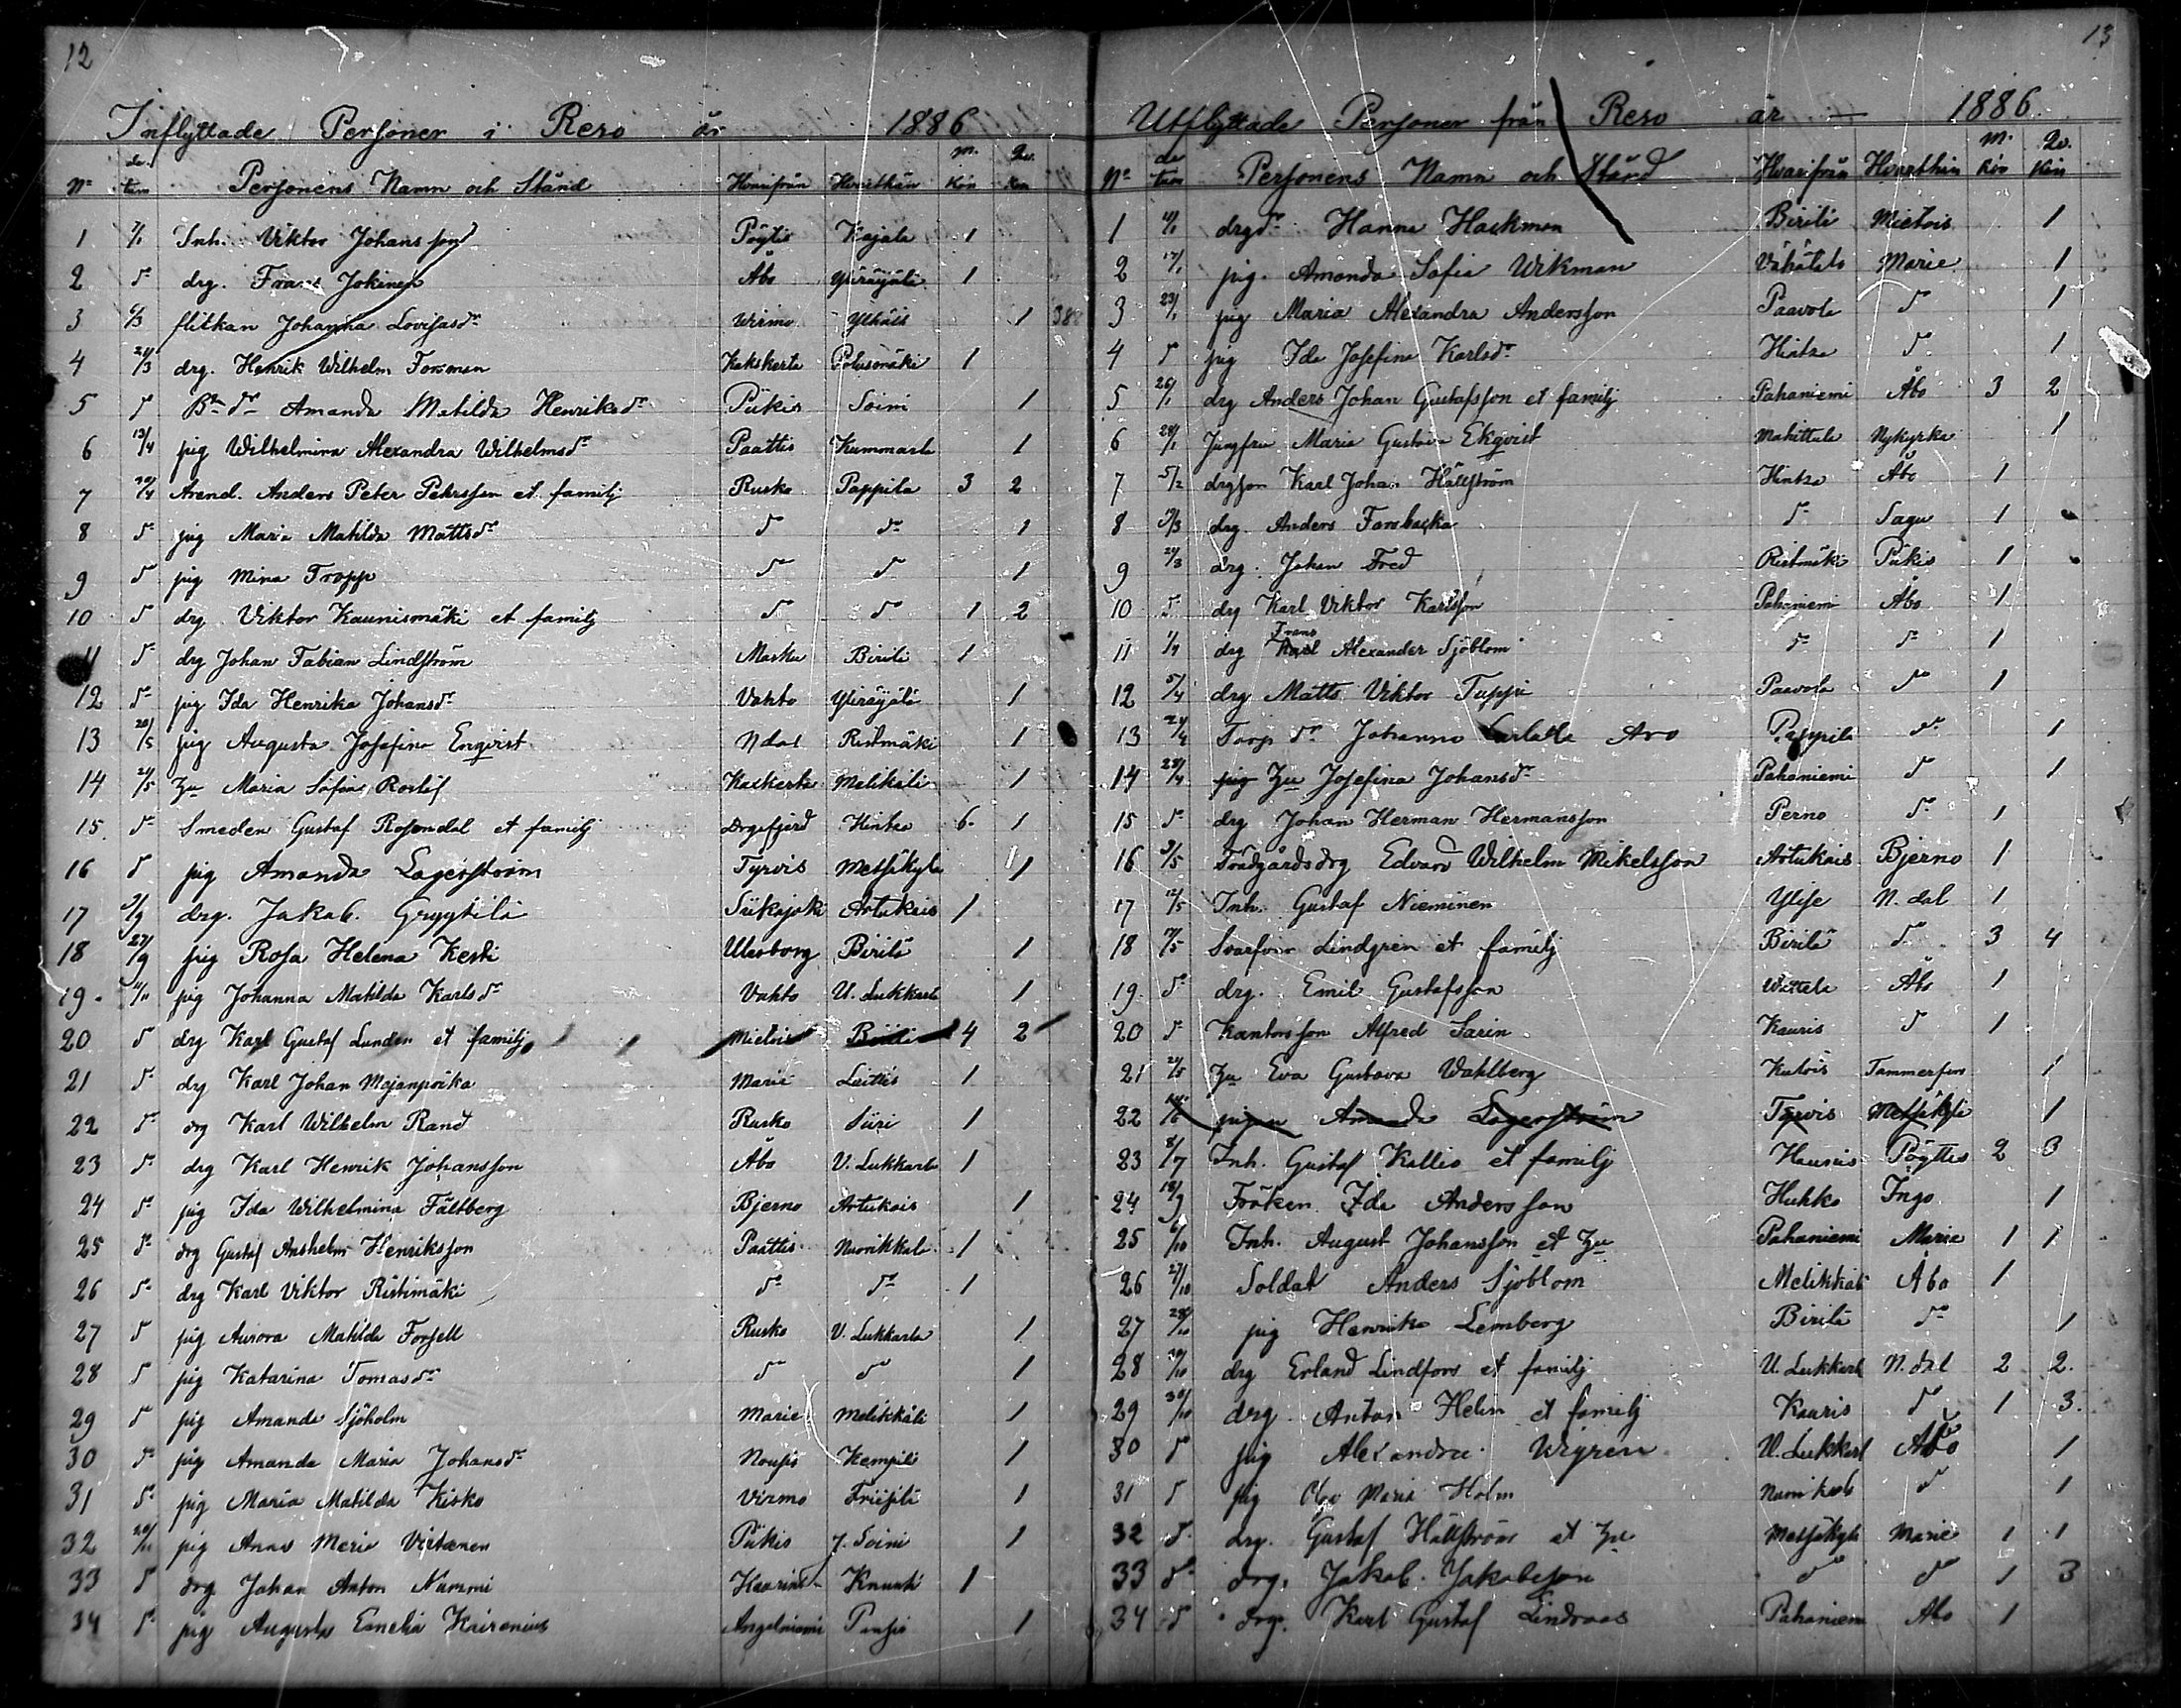 12
Inflyttade Personer i Reso år 1886
No datum Personens Namn och Stånd Hvarifrån Hvarthän M. Kön Qv. Kön
1 7/1 Inh. Viktor Johansson Pöytis Kajala 1
2 do drg. Frans Jokinen Åbo Yliräyälä 1
3 6/3 flickan Johanna Lovisasdr Virmo 1
4 24/3 drg. Henrik Wilhelm Forsman Kakskerta 1
5 do Amanda Matilda Henriksdr Piikis Soini 1
6 13/4 pig Wilhelmina Alexandra Wilhelmsdr Paattis Kummarla 1
7 20/4 Arend. Anders Peter Pehrsson et familj Rusko Pappila 3 2
8 do pig Maria Matilda Mattsdr do do 1
9 do pig Mina Tropp do do 1
10 do drg Viktor Kaunismäki et familj do do 1 2
11 do drg Johan Fabian Lindström Masku Birilä 1
12 do pig Ida Henrika Johansdr Vahto Yliräyälä 1
13 20/5 pig Augusta Josefina Enqvist Ndal Ristimäki 1
14 24/5 Maria Sofia Kaskerta Melikälä 1
15 do Smeden Gustaf Rosendal et familj Dragsfjerd Hintsa 6 1
16 do pig Amanda Lagerström Tyrvis Metsäkylä 1
17 9/9 drg. Jakob Siikajoki Artukais 1
18 27/9 pig Rosa Helena Kesti Uleoborg Birilä 1
19 11/11 pig Johanna Matilda Karlsdr Vahto U. Lukkarla 1
20 do drg Karl Gustaf Lunden et familj Mietois Birilä 4 2
21 do drg Karl Johan Majanpoika Marie Luittis 1
22 do drg Karl Wilhelm Rand Rusko 1
23 do drg Karl Henrik Johansson Åbo U. Lukkarla 1
24 do pig Ida Wilhelmina Fältberg Bjerno Artukais 1
25 do drg Gustaf Anshelm Henriksson Paattis Nuorikkala 1
26 do drg Karl Viktor Ristimäki do do 1
27 do pig Aurora Matilda Forsell Rusko U. Lukkarla 1
28 do pig Katarina Tomasdr do do 1
29 do pig Amanda Sjöholm Marie Melikkälä 1
30 do pig Amanda Maria Johansdr Nousis Kempilä 1
31 do pig Maria Matilda Kisko Virmo 1
32 20/11 pig Anna Maria Virtanen Piikis Y. Soini 1
33 do drg Johan Anton Nummi Kaarina Knuuti 1
34 do pig Augusta Emelia Kairenius Angelniemi Pansio 1
13
Utflyttade Personer från Reso år 1886.
No datum Personens Namn och Stånd Hvarifrån Hvarthän M. Kön Qv. Kön
1 drgdr Hanna Hackman Birilä Mietois 1
2 17/1 pig. Amanda Sofia Wikman Vähätalo Marie 1
3 23/1 pig Maria Alexandra Andersson Paavola do 1
4 do pig Ida Josefina Karlsdr Hintsa do 1
5 26/1 drg Anders Johan Gustafsson et familj Pahaniemi Åbo 3 2
6 28/1 Jungfru Maria Gustava Ekqvist Mahittula Nykyrka 1
7 5/2 drgson Karl Johan Hällström Hintsa Åbo 1
8 drg. Anders Farsbacka do Sagu 1
9 24/3 drg. Johan Fred Ristimäki Piikis 1
10 do drg Karl Viktor Karlsson Pahaniemi Åbo 1
11 1/4 drg Karl Frans Alexander Sjöblom do do 1
12 5/4 drg Matts Viktor Tuppi Paavola do 1
13 24/4 Torp dr Johanna Aro Pappila do 1
14 28/4 pig Josefina Johansdr Pahaniemi do 1
15 do drg Johan Herman Hermansson Perno do 1
16 3/5 Trädgårdsdrg Edvard Wilhelm Mikelsson Artukais Bjerno 1
17 Inh. Gustaf Nieminen N. dal 1
18 Lindgren et familj Birilä do 3 4
19 do drg. Emil Gustafsson Åbo 1
20 do Kantorsson Alfred Sarin Kauris do 1
21 24/5 Eva Gustava Wahlberg Kulois Tammerfors 1
22 pigan Amanda Lagerström Tyrvis Metsäkylä 1
23 8/7 Inh. Gustaf Kallio et familj Haunis Pöyttis 2 3
24 18/9 Fröken Ida Andersson Huhko Ingo 1
25 6/10 Inh. August Johansson et Pahaniemi Marie 1 1
26 27/10 Soldat Anders Sjöblom Melikkälä Åbo 1
27 28/10 pig Henrika Lemberg Birilä do 1
28 29/10 drg Erland Lindfors et familj U. Lukkarla N. dal 2 2
29 30/10 drg. Anton Helin et familj Kauris do 1 3
30 do pig Alexandra U. Lukkarl Åbo 1
31 do pig Maria Holm do 1
32 do drg. Gustaf Hällström et Metsäkylä Marie 1 1
33 do drg. Jakob Jakobsson do do 1 3
34 do drg. Karl Gustaf Lindroos Pahaniemi Åbo 1